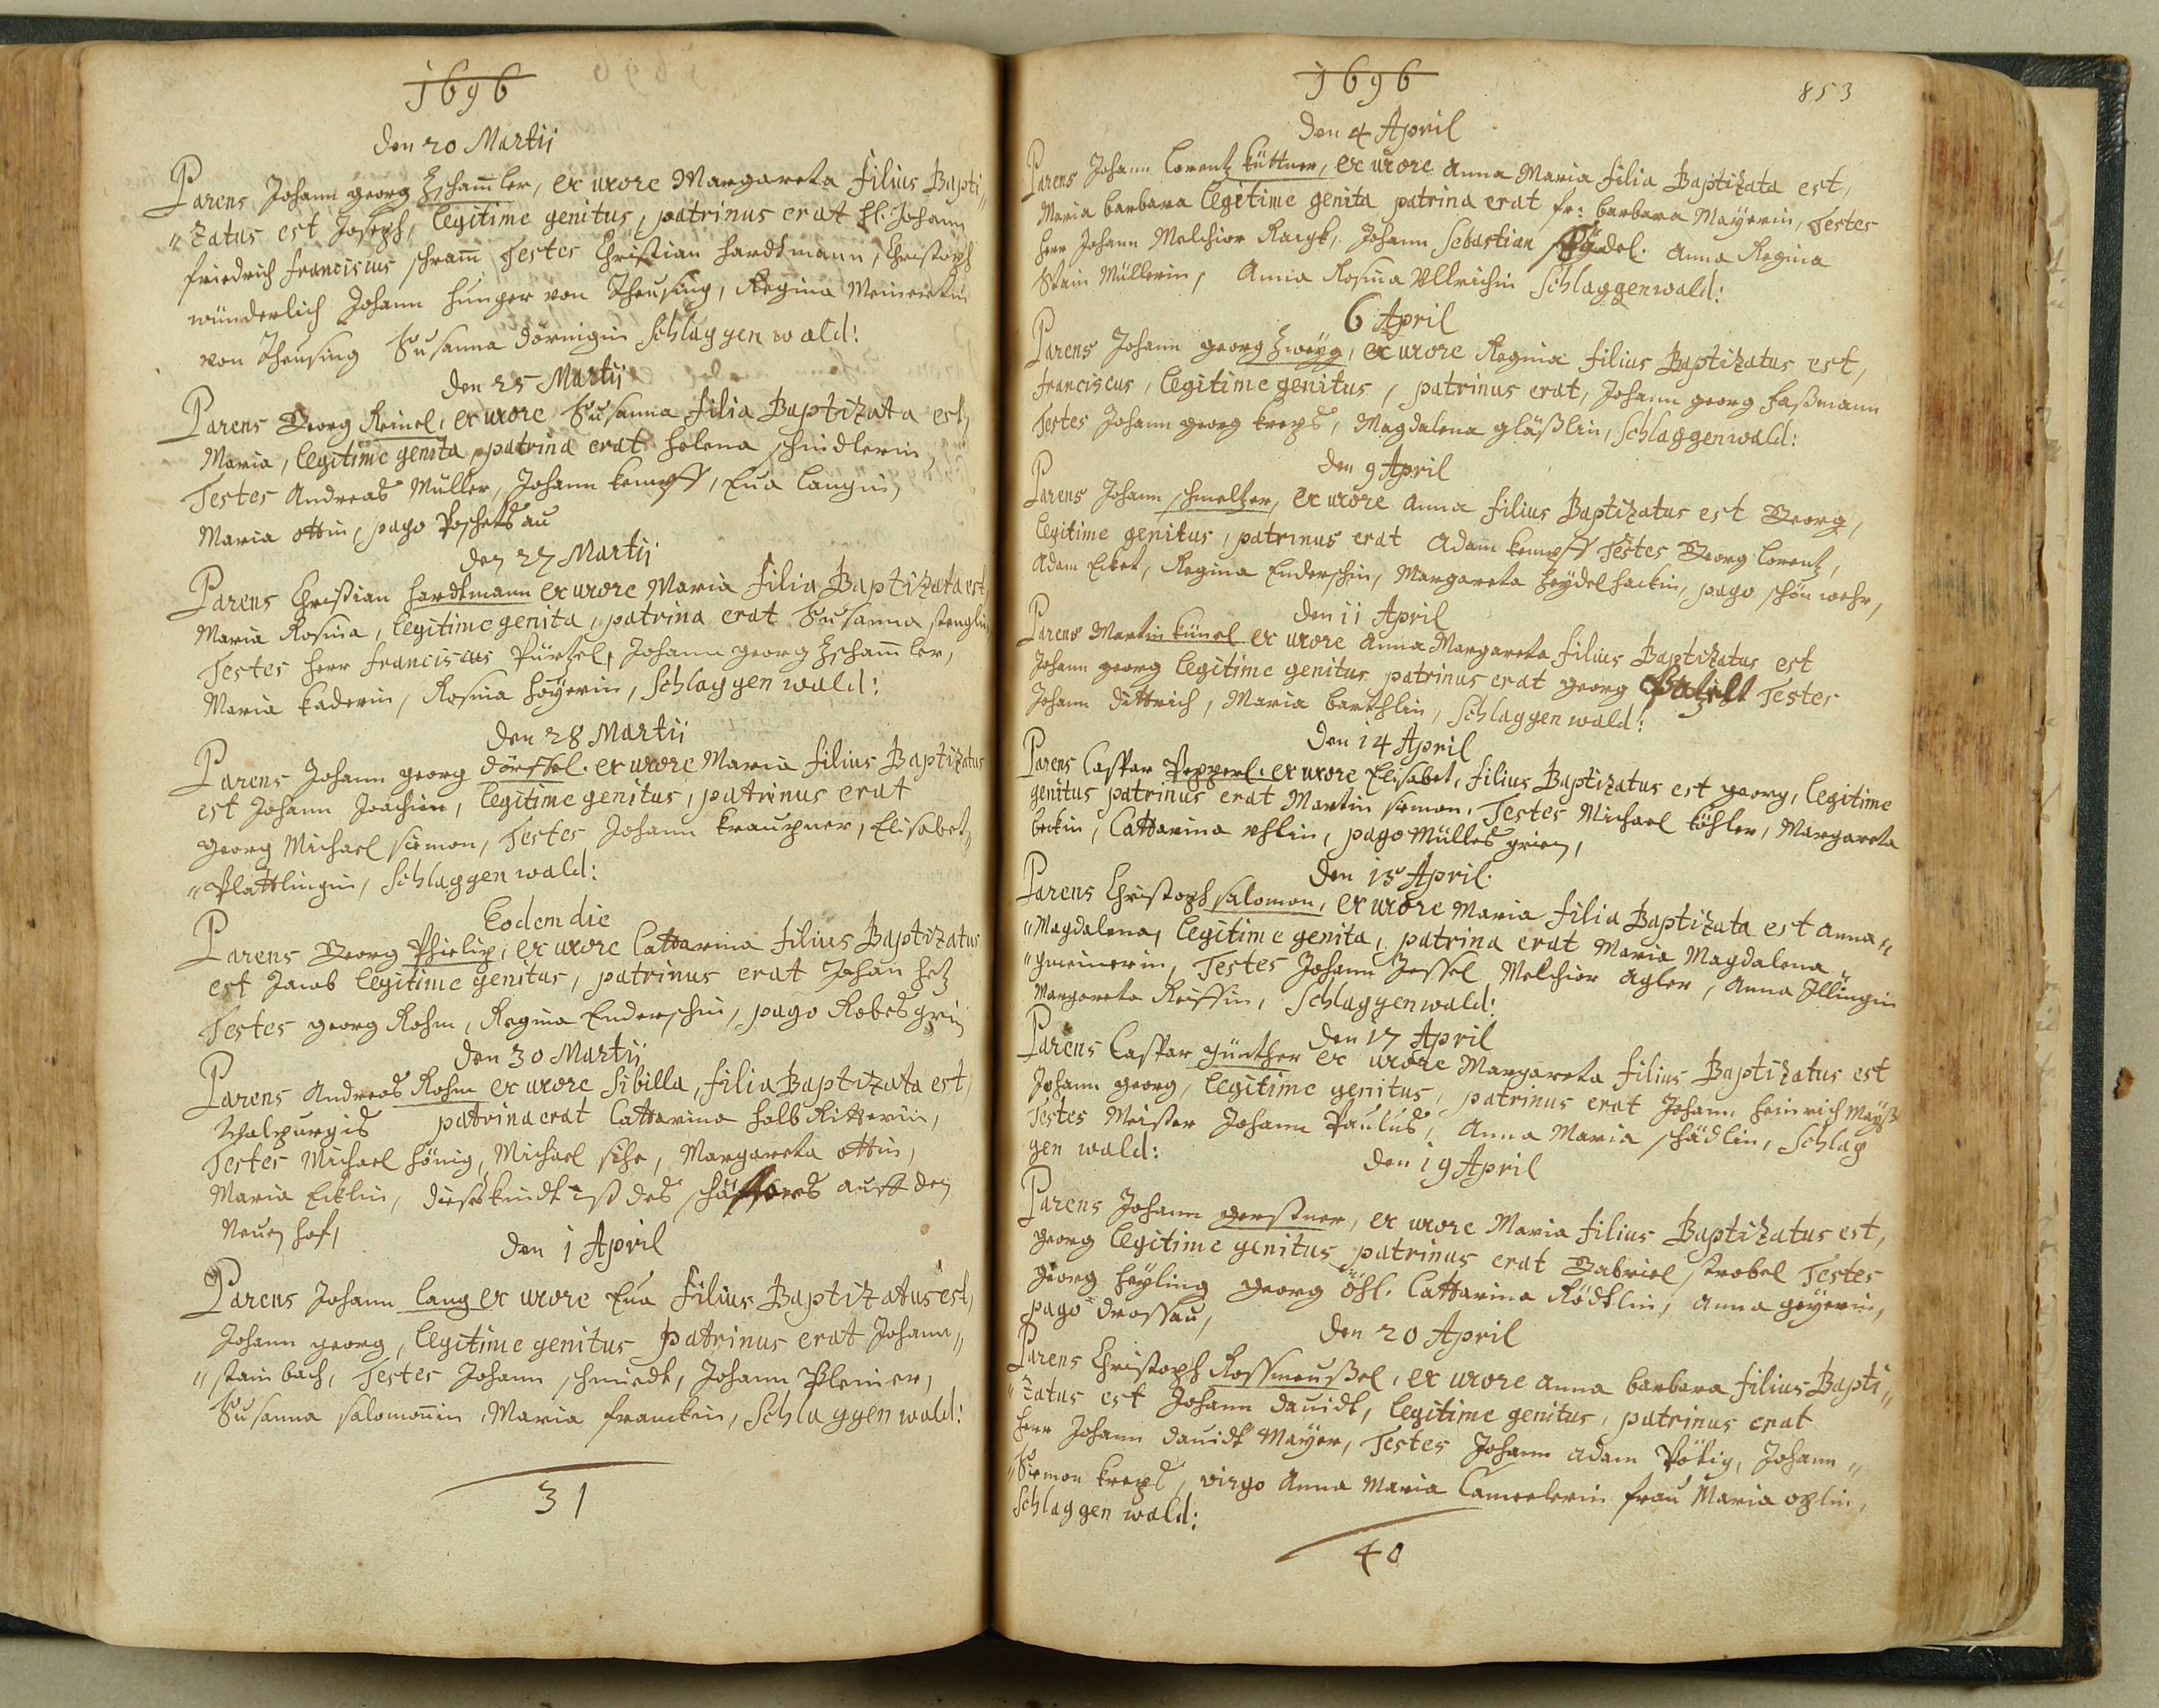 1696
den 20 Martii
Parens Johann georg Zschamler, ex uxore Margareta filius Bapti„
„zatus est Joseph, legitime genitus, patrinus erat H: Johann
friedrich franciscus schram Testes Christian hardtmann, Christoph
wunderlich Johann hunger von Theusing, Regina
von Theusing Susanna dörnigin Schlaggen wald:
den 25 Martii
Parens Georg Reinel, ex uxore Susanna filia Baptizata est,
Maria, legitime genita, patrina erat helena schindlerin,
Testes Andreas Muller, Johann kempff, Eua langin,
Maria ottin, pago Poschetsau
den 27 Martii
Parens Christian hardtmann ex uxore Maria filia Baptizata est
Maria Rosina, legitime genita, patrina erat Susanna stenglin
Testes herr franciscus Pürtzel, Johann georg Zschamler,
Maria kaderin, Rosina höyerin, Schlaggen wald:
den 28 Martii
Parens Johann georg dörffel. ex uxore Maria filius Baptizatus
est Johann Joachim, legitime genitus, patrinus erat
georg Michael simon, Testes Johann kraupner, Elisabet„
„Plattlingin, Schlaggen wald:
Eodem die
Parens Georg Phielip, ex uxore Cattarina filius Baptizatus
est Jacob legitime genitus, patrinus erat Johan hetz
Testes georg Rohm, Regina Enderschin, pago Robesgrin
den 30 Martii
Parens Andreas Rohm ex uxore Sibilla, filia Baptizata est,
Walpurgis patrina erat Cattarina halb Ritterin,
Testes Michael hönig, Michael sihr, Margareta ottin,
Maria Ecklin, dieses kindt ist des schäffers auff den
Neuen hof,
den 1 April
Parens Johann lang ex uxore Eua filius Baptizatus est,
Johann georg, legitime genitus patrinus erat Johann„
„stainbach, Testes Johann schmiedt, Johann Pleiner,
Susanna salomonin, Maria franckin, Schlaggen wald:
31
1696
853
den 4 April
Parens Johann lorentz küttner, ex uxore Anna Maria filia Baptizata est,
Maria barbara legitime genita patrina erat fr: barbara Mayerin, Testes
herr Johann Melchior Sebastian Anna Regina
Stain Müllerin, Anna Rosina Ullrichin Schlaggenwald:
6 April
Parens Johann georg Zweyg, ex uxore Regina filius Baptizatus est,
franciscus, legitime genitus, patrinus erat, Johann georg faßmann
Testes Johann georg kreps, Magdalena gläßlin, Schlaggenwald:
den 9 April
Parens Johann schmeltzer, ex uxore Anna filius Baptizatus est Georg,
legitime genitus, patrinus erat Adam kempff Testes Georg lorentz,
Adam Ecket, Regina Enderschin, Margareta heydelhackin, pago schön wehr,
den 11 April
Parens Martin künel ex uxore Anna Margareta filius Baptizatus est
Johann georg legitime genitus patrinus erat georg Patzelt Testes
Johann dittrich, Maria barthlin, Schlaggen wald:
den 14 April
Parens Caspar Pepperl. ex uxore Elisabet, filius Baptizatus est georg, legitime
genitus patrinus erat Martin simon, Testes Michael köhler, Margareta
beckin, Cattarina uhlin, pago Mülles grien,
den 15 April.
Parens Christoph salomon, ex uxore Maria filia Baptizata est Anna„
„Magdalena, legitime genita, patrina erat Maria Magdalena
„gmeinerin, Testes Johann Jessel Melchior Agler, Anna Illingin
Margareta Reissin, Schlaggenwald:
den 17 April
Parens Caspar günther ex uxore Margareta filius Baptizatus est
Johann georg, legitime genitus, patrinus erat Johann heinrich Mayß
Testes Meister Johann Paulus, Anna Maria schädlin, Schlag
gen wald:
den 19 April
Parens Johann gerstner, ex uxore Maria filius Baptizatus est,
georg legitime genitus patrinus erat Gabriel strobel Testes
georg heyling georg öhl. Cattarina Rödtlin, Anna geyerin,
pago drossau,
den 20 April
Parens Christoph Rossmeußel, ex uxore Anna barbara filius Bapti„
„zatus est Johann dauidt, legitime genitus, patrinus erat
herr Johann dauidt Mayer, Testes Johann Adam Pötig, Johann„
„Simon kreps, virgo Anna Maria Camerlerin frau Maria oplin,
Schlaggen wald:
40